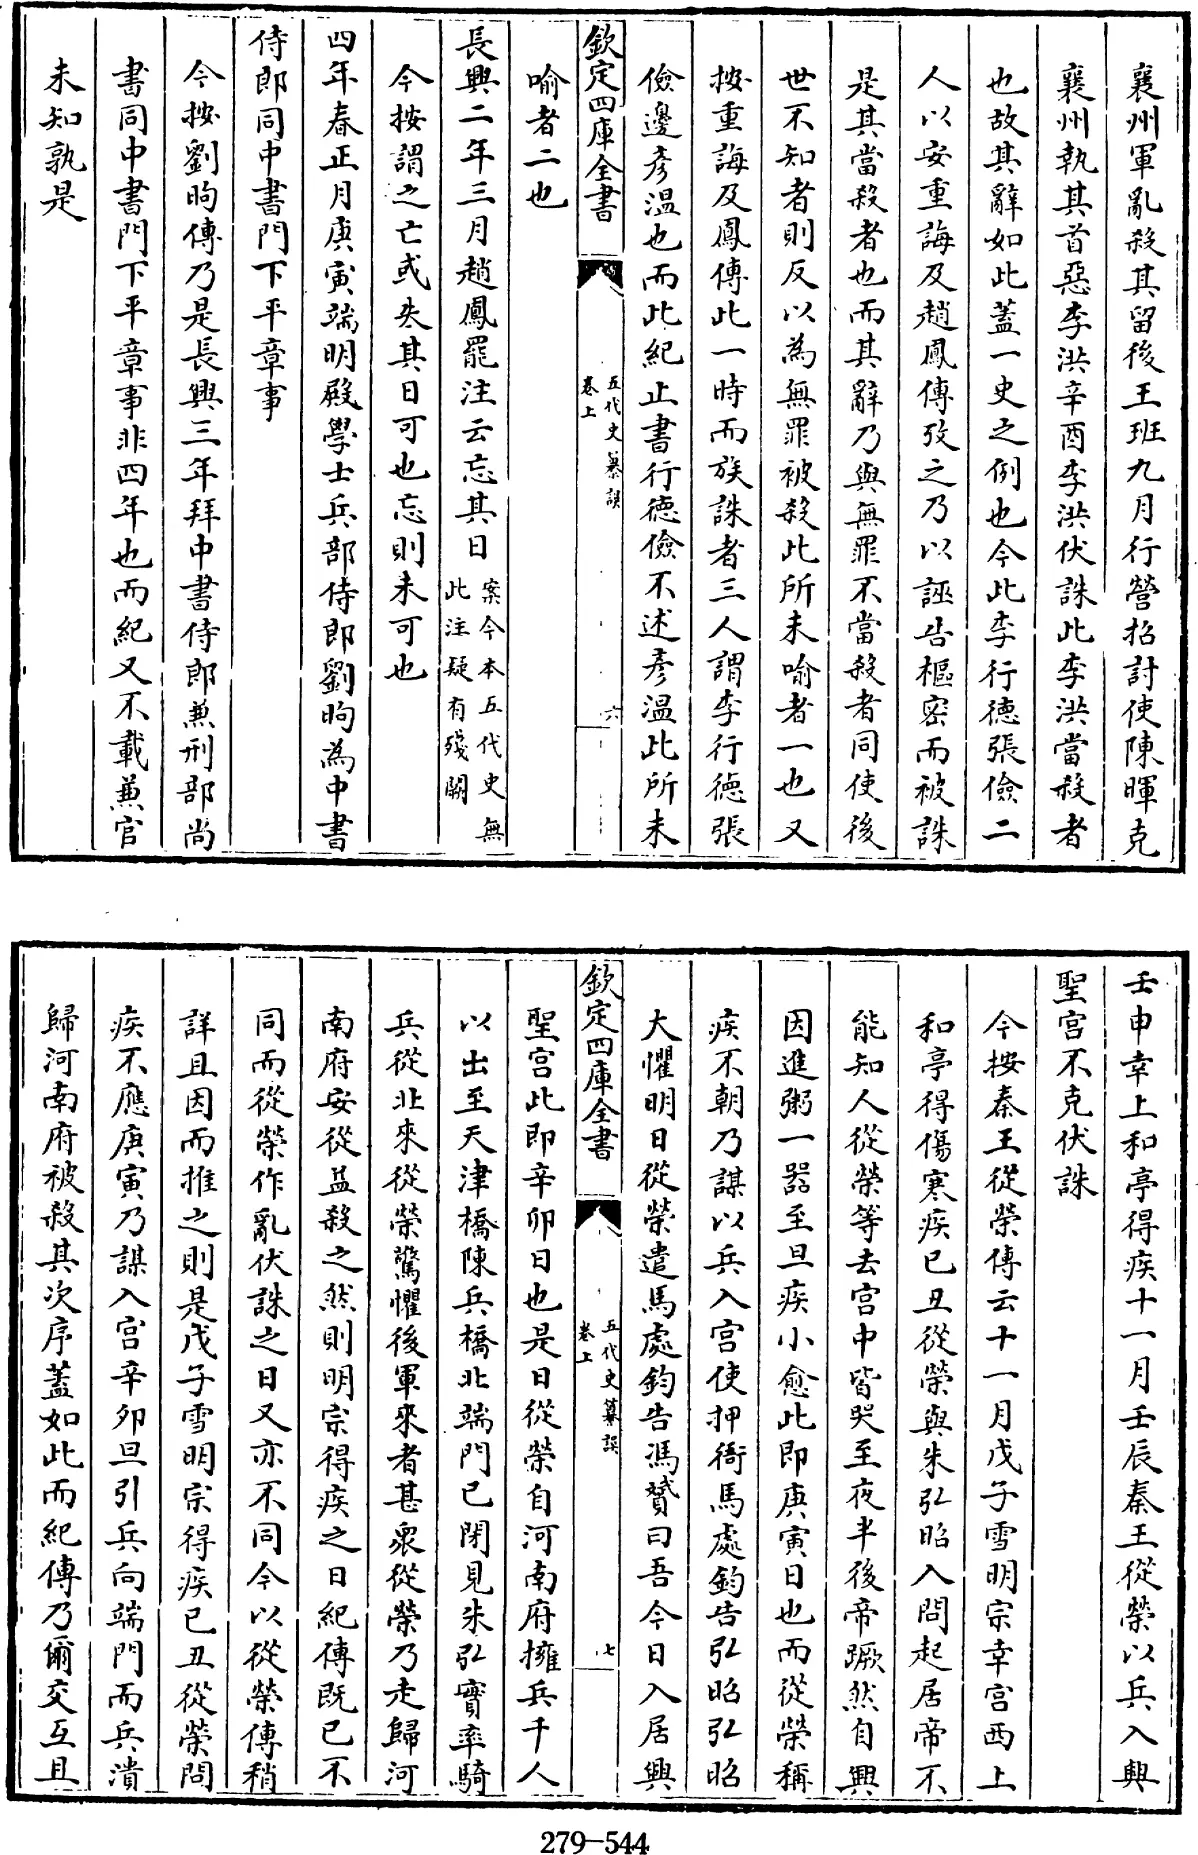 襄州軍亂殺其留後王班九月行營招討使陳暉克
襄州執其首惡李洪辛酉李洪伏誅此李洪當殺者
也故其辭如此蓋一史之例也今此李行德張儉二
人以安重誨及趙鳳傳攷之乃以誣告樞密而被誅
是其當殺者也而其辭乃與無罪不當殺者同使後
世不知者則反以為無罪被殺此所未喻者一也又
按重誨及鳳傳此一時而族誅者三人謂李行德張
儉邊彥溫也而此紀止書行德儉不述彥溫此所未
欽定四庫全書
五代史纂誤
卷上
六
喻者二也
長興二年三月趙鳳罷注云忘其日
案今本五代史無
此注疑有殘闕
今按謂之亡或失其日可也忘則未可也
四年春正月庚寅端明殿學士兵部侍郎劉昫為中書
侍郎同中書門下平章事
今按劉昫傳乃是長興三年拜中書侍郎兼刑部尚
書同中書門下平章事非四年也而紀又不載兼官
未知孰是
壬申幸上和亭得疾十一月壬辰秦王從榮以兵入興
聖宮不克伏誅
今按秦王從榮傳云十一月戊子雪明宗幸宮西上
和亭得傷寒疾已丑從榮與朱弘昭入問起居帝不
能知人從榮等去宮中皆哭至夜半後帝蹶然自興
因進粥一器至旦疾小愈此即庚寅日也而從榮稱
疾不朝乃謀以兵入宮使押衙馬處鈞告弘昭弘昭
大懼明日從榮遣馬處鈞告馮贇曰吾今日入居興
欽定四庫全書
五代史纂誤
卷上
七
聖宮此即辛卯日也是日從榮自河南府擁兵千人
以出至天津橋陳兵橋北端門已閉見朱弘實率騎
兵從北來從榮驚懼後軍來者甚衆從榮乃走歸河
南府安從益殺之然則明宗得疾之日紀傳既已不
同而從榮作亂伏誅之日又亦不同今以從榮傳稍
詳且因而推之則是戊子雪明宗得疾已丑從榮問
疾不應庚寅乃謀入宮辛卯旦引兵向端門而兵潰
歸河南府被殺其次序蓋如此而紀傳乃爾交互且
279-544